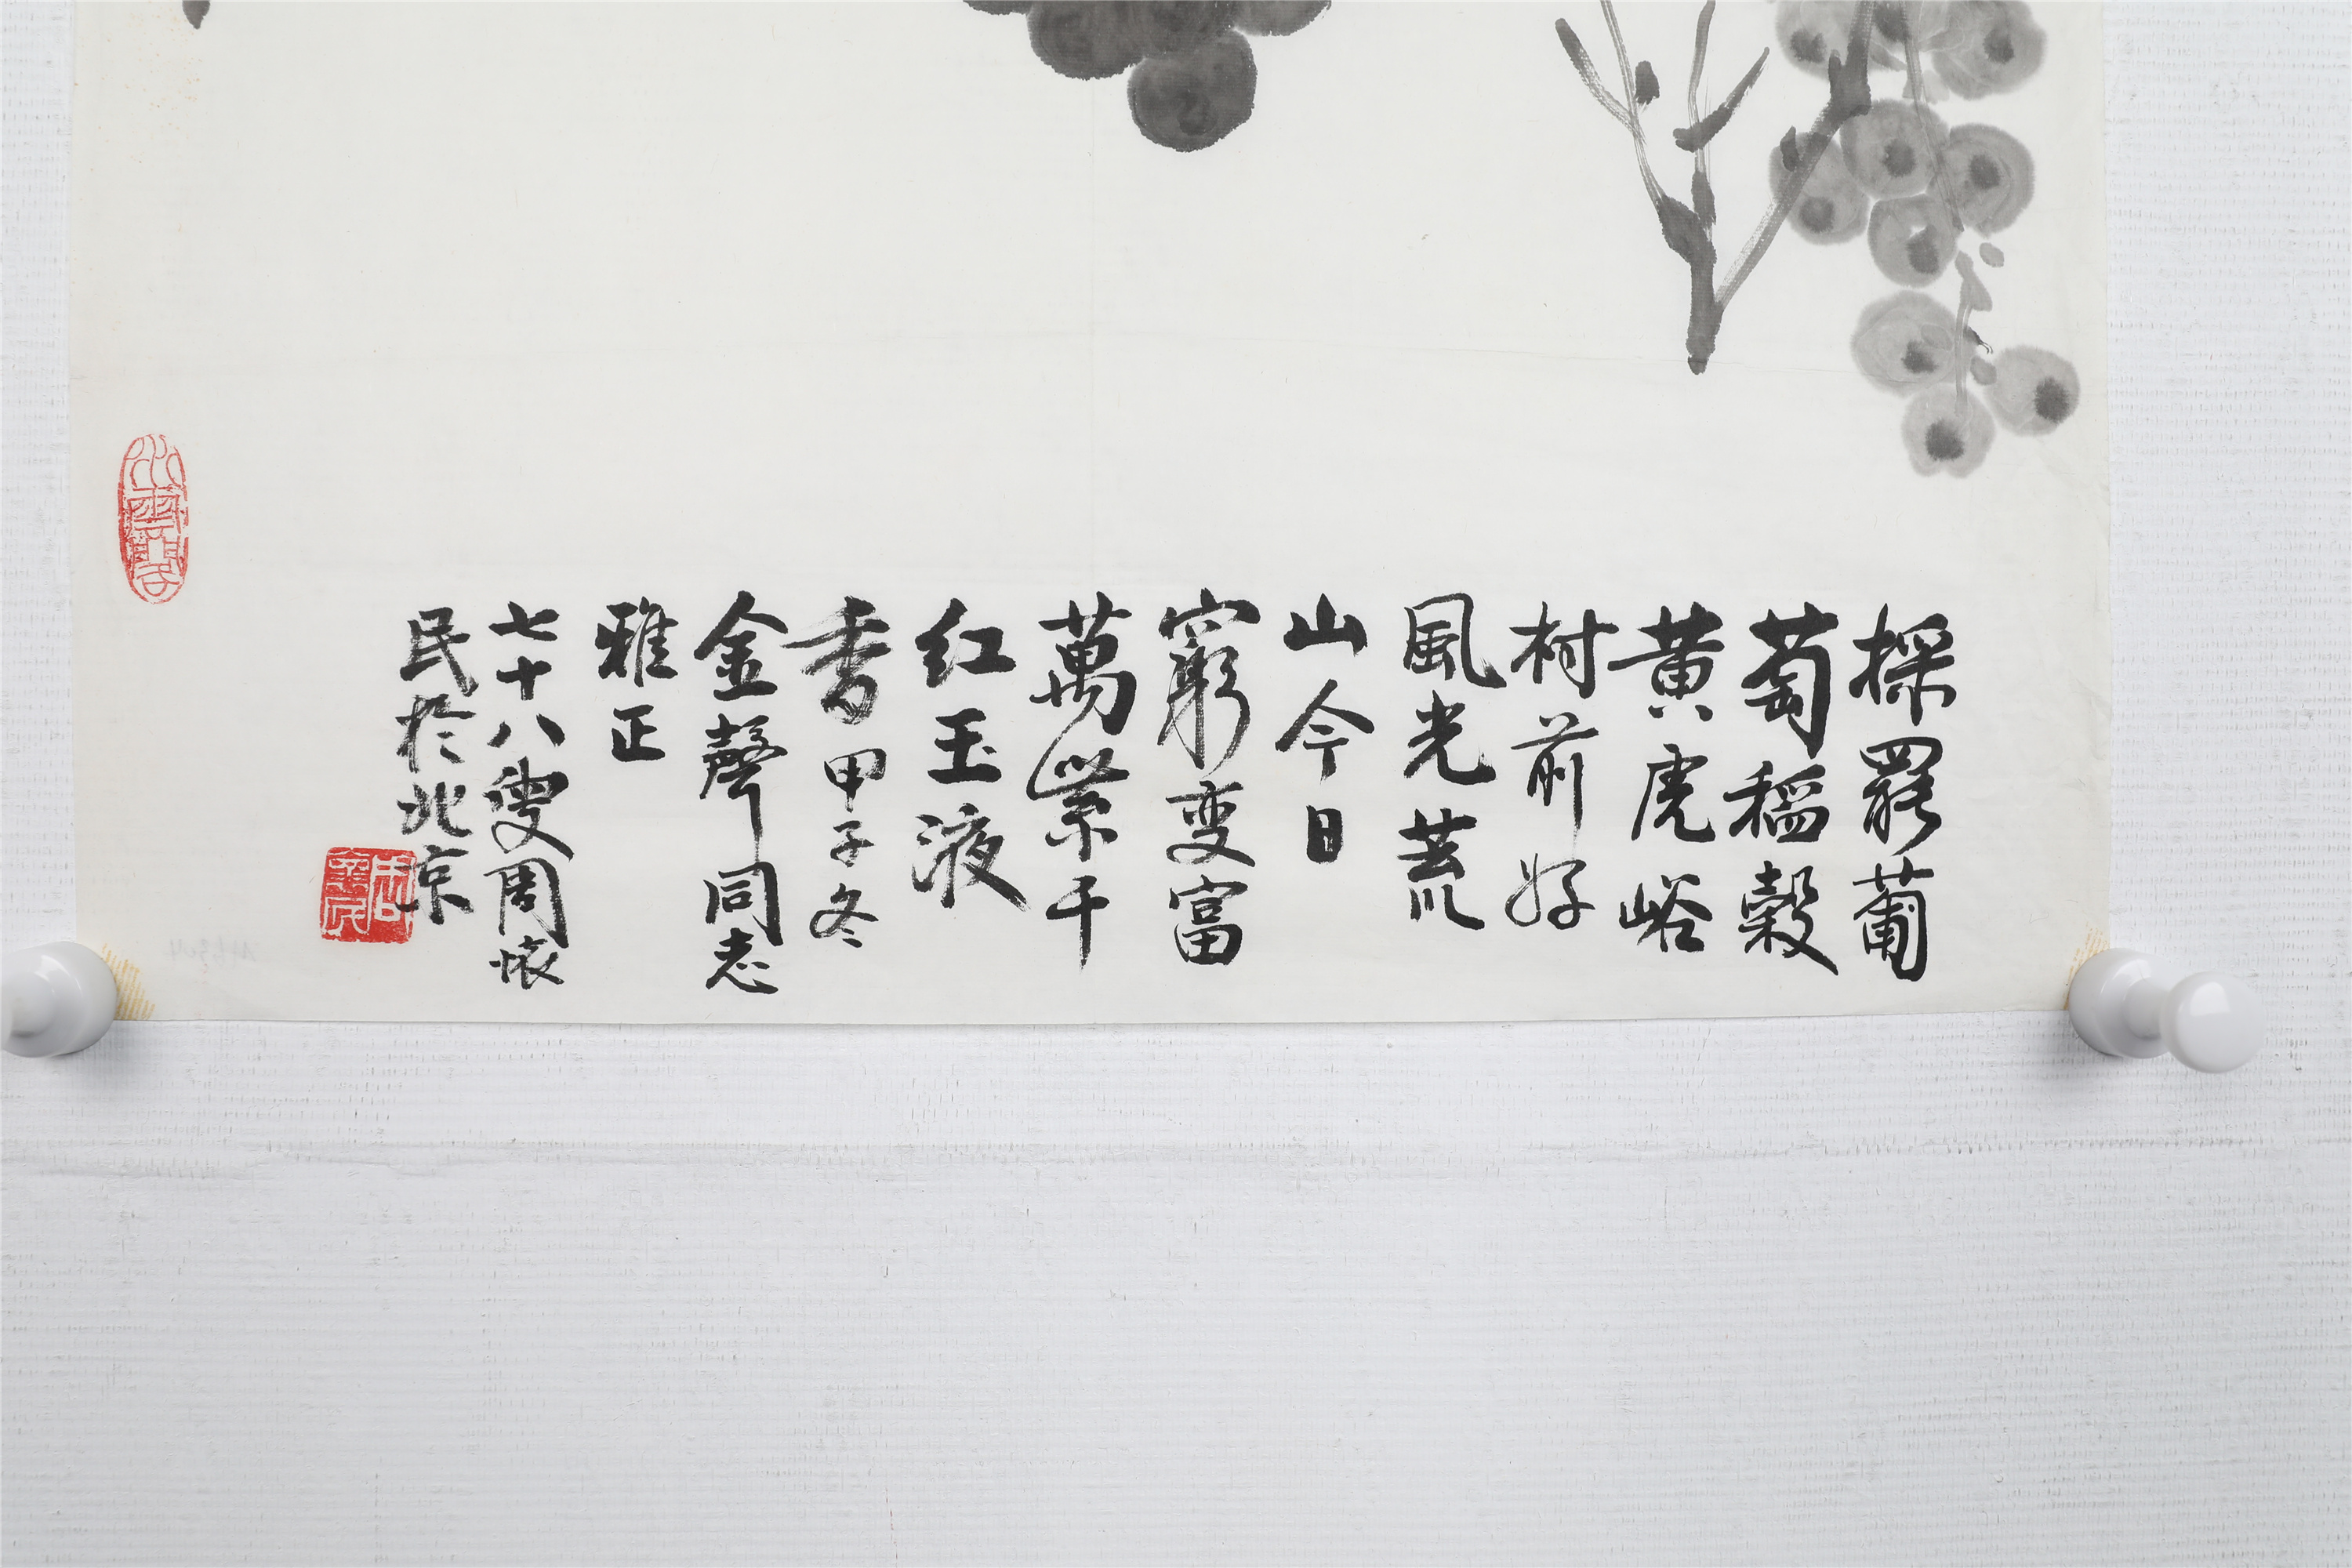 採罷葡
萄稻穀
黄虎峪
村前好
風光荒
山今日
窮变富
萬紫千
红玉液
香甲子冬
金聲同志
雅正
七十八叟周懷
民於北京